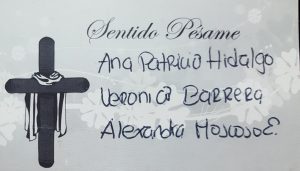 Sentido Pésame
Ana Patricia Hidalgo
Veronica Barrera
Alexandra Moscoso E.